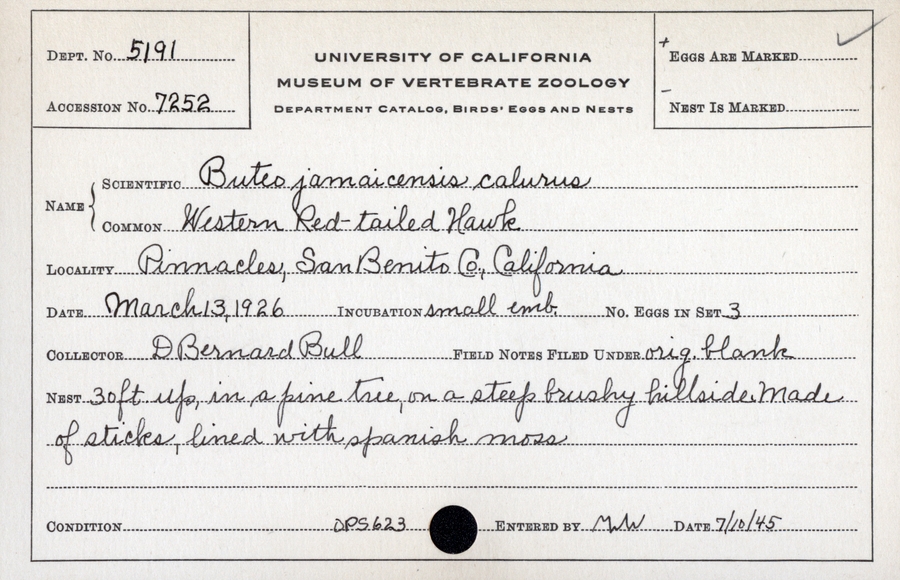 Dept. No. 5191
Accession No. 7252
UNIVERSITY OF CALIFORNIA
MUSEUM OF VERTEBRATE ZOOLOGY
Department Catalog, Birds' Eggs and Nests
+ Eggs Are Marked ✓
– Nest Is Marked
Name { Scientific Buteo jamaicensis calurus
Common Western Red-tailed Hawk
Locality Pinnacles, San Benito Co., California
Date March 13, 1926 Incubation small emb. No. Eggs in Set 3
Collector D Bernard Bull Field Notes Filed Under orig. blank
Nest 30ft up, in a pine tree, on a steep brushy hillside. Made
of sticks, lined with spanish moss
Condition DPS623 Entered by Date 7/10/45